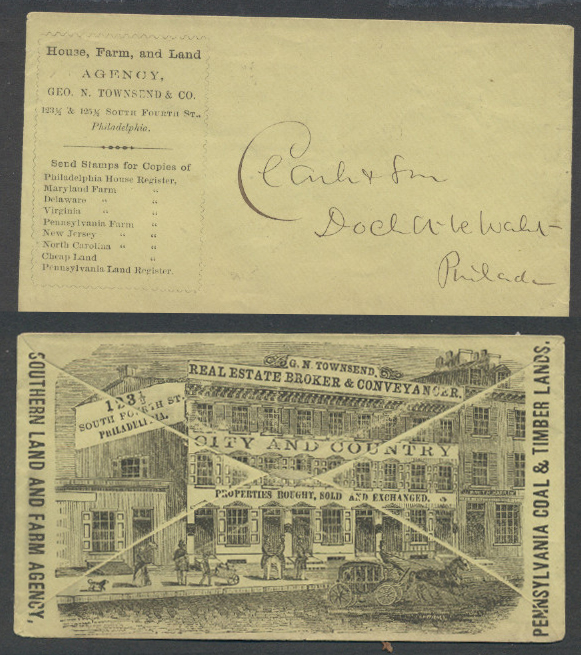 House, Farm, and Land
AGENCY,
GEO. N. TOWNSEND & CO.
123½ & 125½ SOUTH FOURTH ST.,
Philadelphia.
Send Stamps for Copies of
Philadelphia House Register.
Maryland Farm "
Delaware " "
Virginia " "
Pennsylvania Farm "
New Jersey " "
North Carolina " "
Cheap Land "
Pennsylvania Land Register.
& Son
Dock
Philada
G. N. TOWNSEND,
REAL ESTATE BROKER & CONVEYANCER,
123½
SOUTH FOURTH ST.
PHILADELPHIA.
CITY AND COUNTRY
PROPERTIES BOUGHT, SOLD AND EXCHANGED.
SOUTHERN LAND AND FARM AGENCY.
PENNSYLVANIA COAL & TIMBER LANDS.